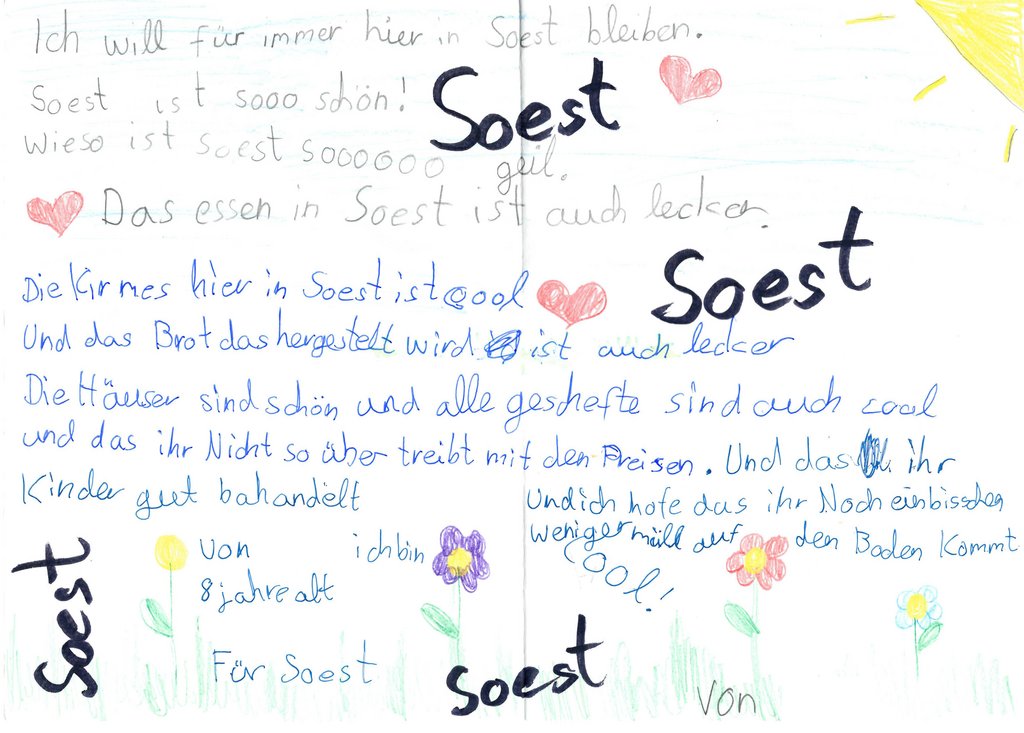 Ich will für immer hier in Soest bleiben.
Soest ist sooo schön!
Soest
Wieso ist Soest soooooo geil.
Das essen in Soest ist auch lecker.
Soest
Die Kirmes hier in Soest ist cool
Und das Brot das hergestelt wird ist auch lecker
Die Häuser sind schön und alle geschefte sind auch cool
und das ihr Nicht so über treibt mit den Preisen. Und das ihr
Kinder gut bahandelt
Und ich hofe das ihr Noch einbisschen
weniger müll auf den Boden kommt
cool!
von ich bin
8 jahre alt
Für Soest
Soest
Soest
von